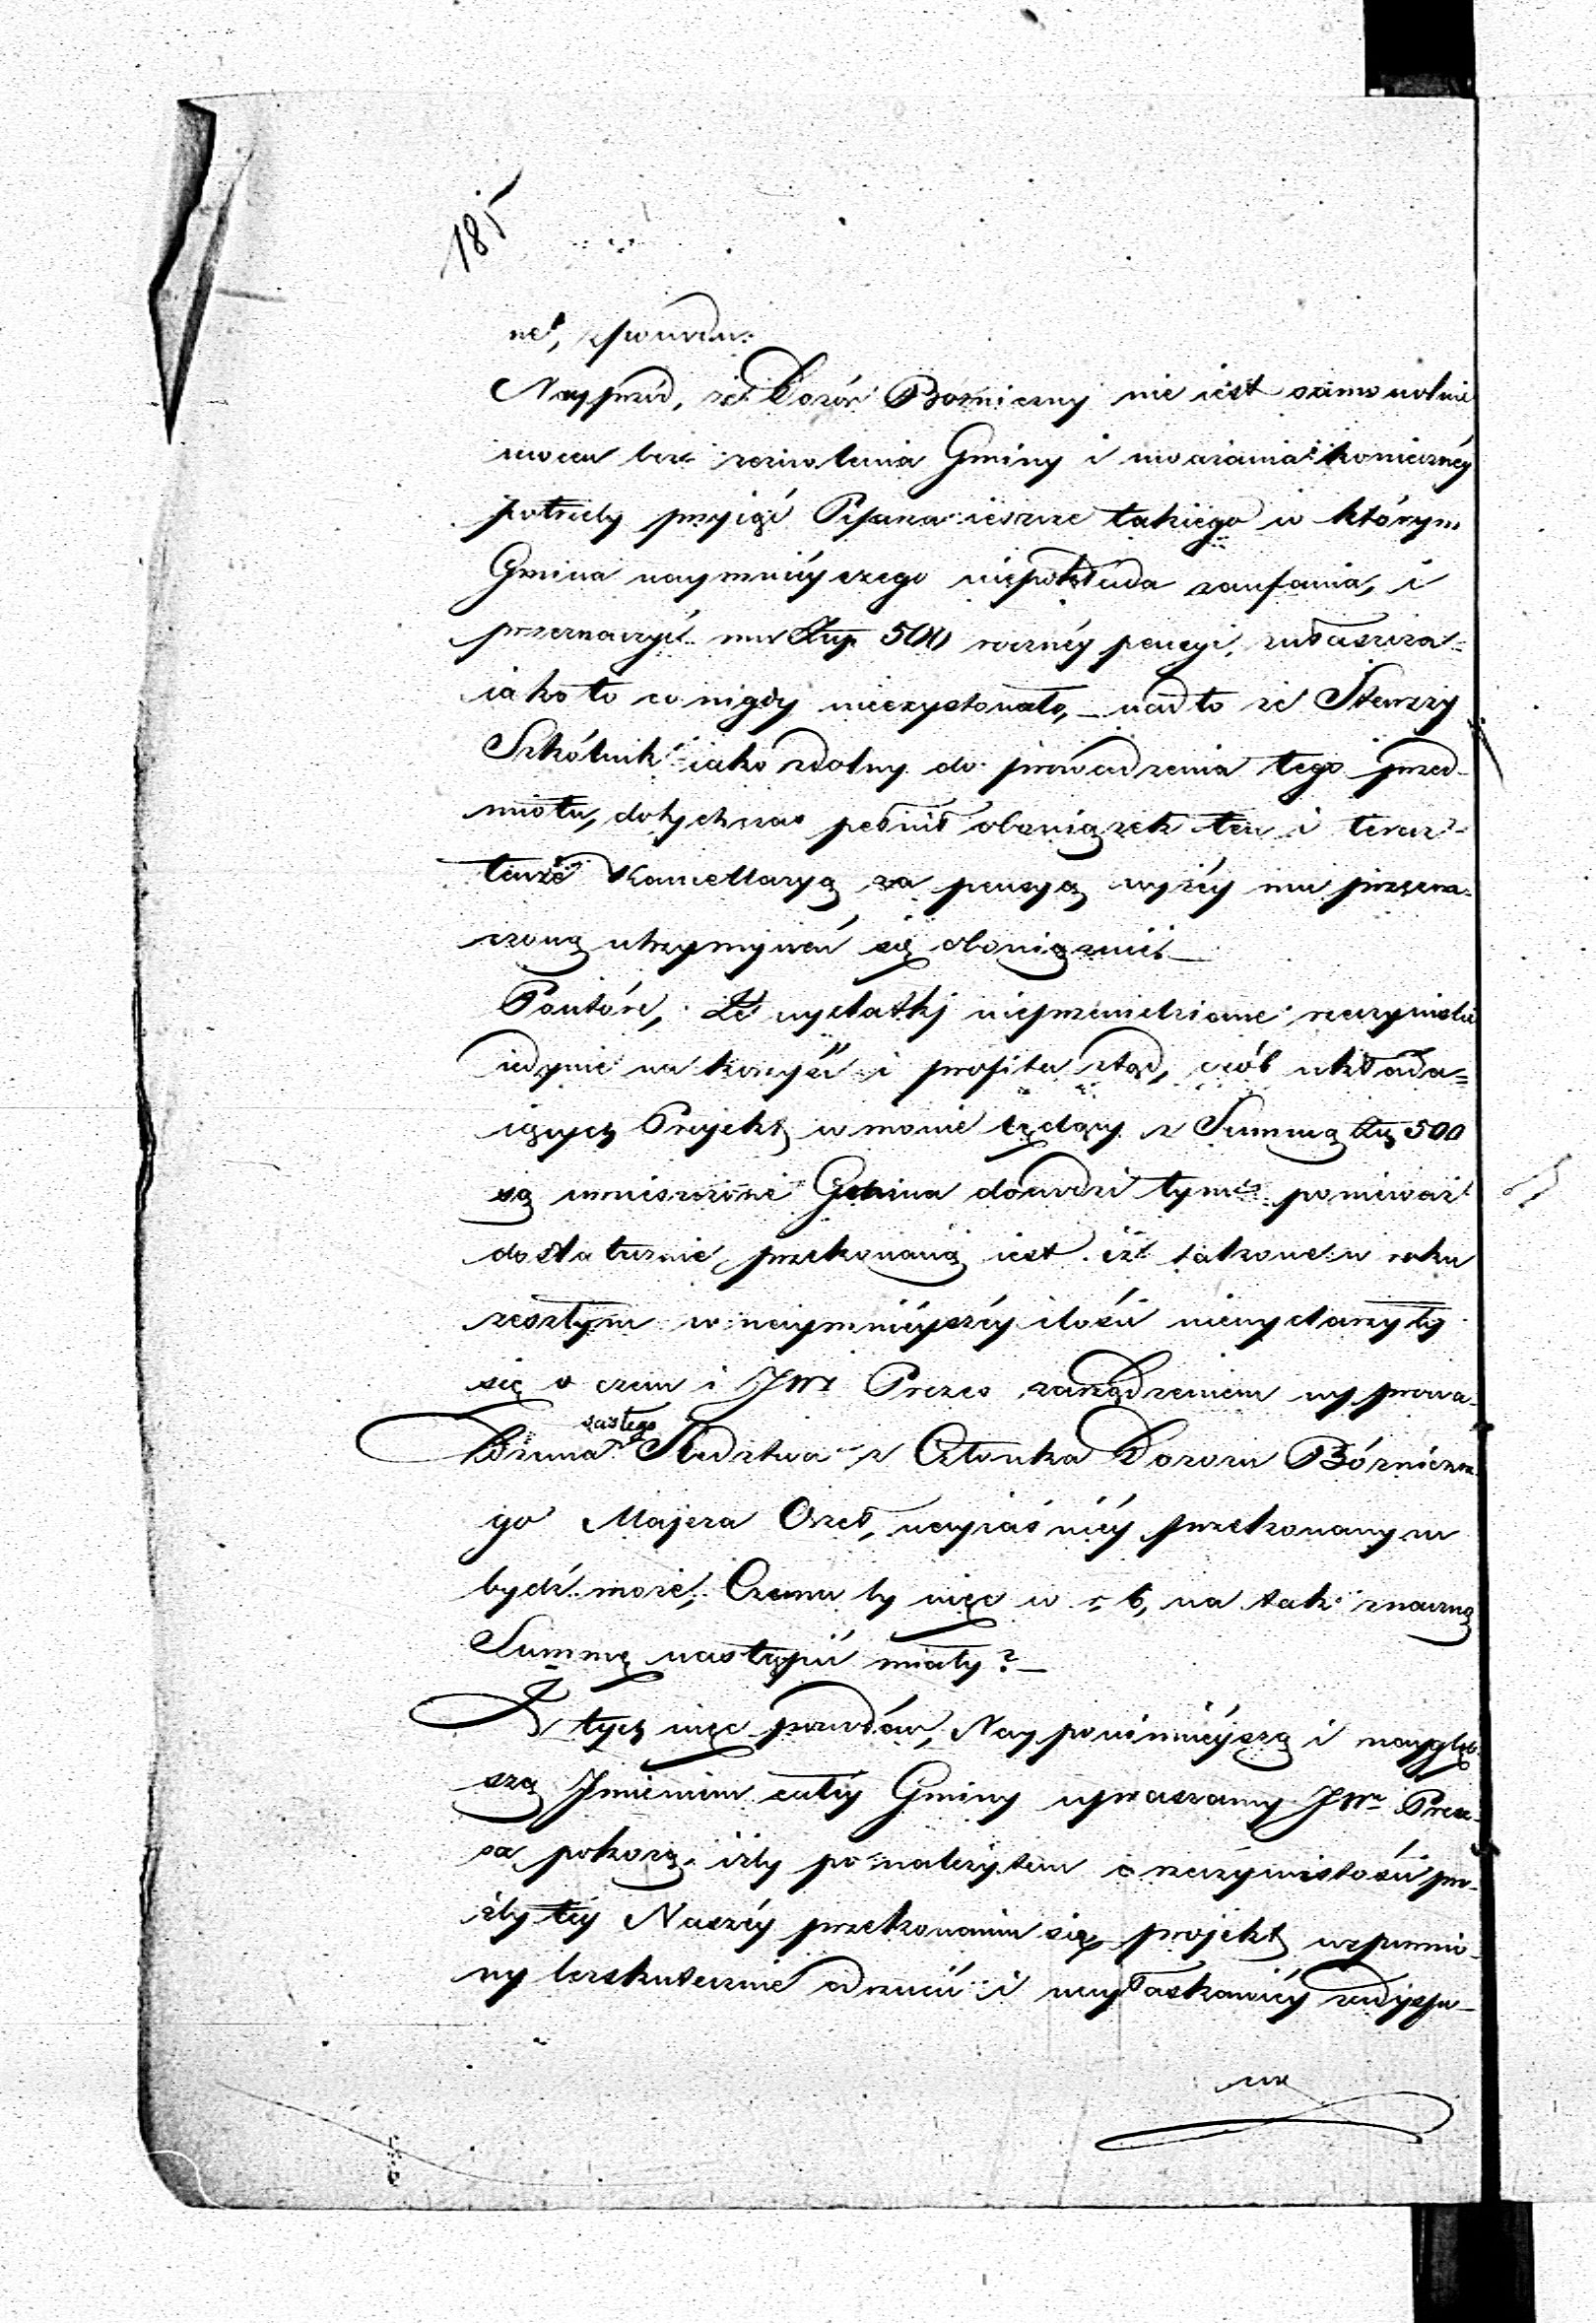 185
ne, z powodu:
Nayprzód, że Dozór Bożniczny nie iest samowolnie
wocen bez zezwolenia Gminy i uważania koniecznéy
potrzeby przyiąć Pisarza ieszcze takiego w którym
Gmina naymniéyszego niepokłada zaufania, i
przeznaczyć mu Złp 500 roczney pensyi, zwłaszcza
iako to co nigdy nieexystowało, nadto że Starszy
Szkólnik iako zdolny do prowadzenia tego przed-
miotu, dotychczas pełnił obowiązek ten i teraz
tenże Kancellaryą za pensyą wyżéy mu przezna-
czoną utrzymywać się obowiązuie
Powtóre, Że wydatki nieprzewidziane rzeczywiście
iedynie na korzyść i profita ztąd, osób układa=
iących Projekt w mowie będący z Summą Złp 500
są umieszczone Gmina dowodzi tym ponieważ
dostatecznie przekonaną iest iż takowe w roku
zeszłym w naymniéyszéy ilości niewydarzyły
się o czem i JWr Prezes zarządzeniem wyprowa-
dzenia zastego Śledztwa z Członka Dozoru Bóżniczne-
go Majera Orzeł, nayiaśniéy przekonanym
bydź może, Czemu by więc w r. b, na tak znaczną
Summę nastąpić miały?
Z tych więc powodów, Naypowinniéyszą i naygłęb-
szą Jmieniem całéy Gminy upraszamy JWo Preze-
sa pokorą, iżby po należytem o rzeczywistości pro-
źby téy Naszéy przekonaniu się projekt wspomnio-
ny bezskutecznie odrzucić i nayłaskawiéy zadyspo-
no